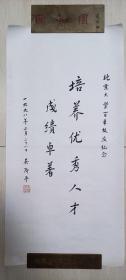 北京大学百年校庆纪念
培养优秀人才
成绩卓著
一九九八年二月二八日 吴阶平